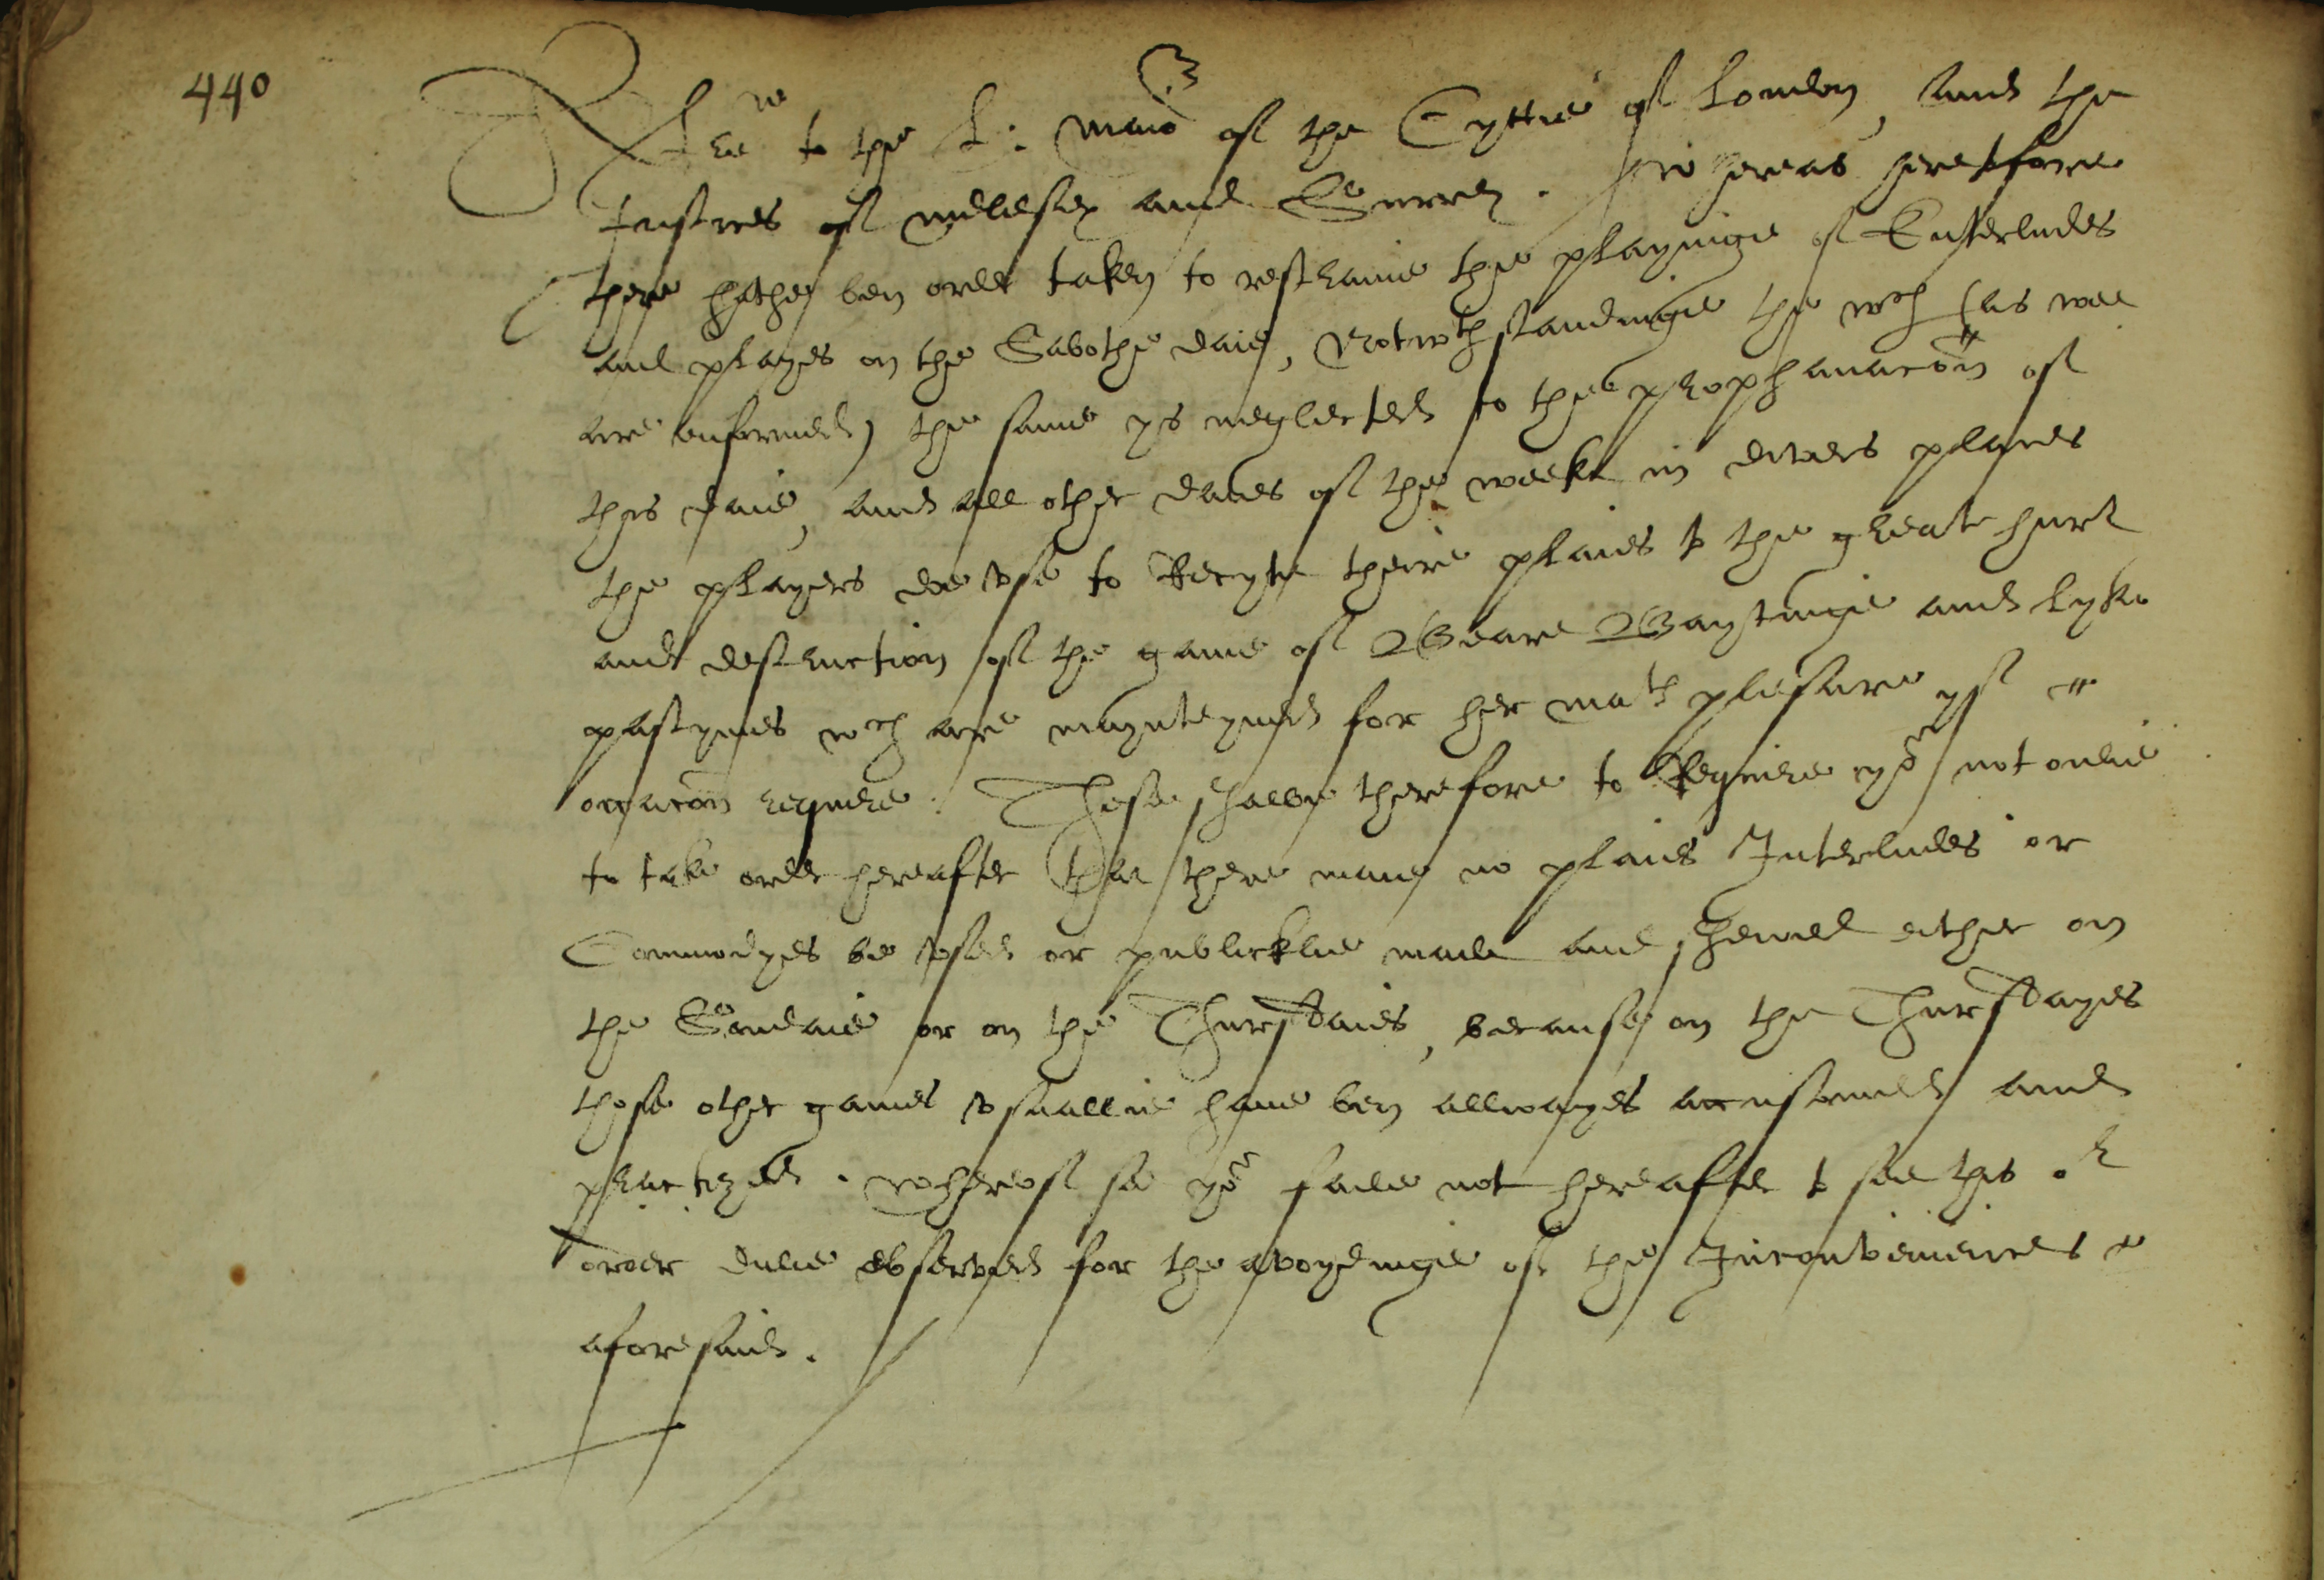 440
A lre to the L: maior of the Cyttie of London, and the
Justices of Midlesex and Surrey. Whereas heretofore
there hathe ben order taken to restraine the playinge of Enterludes
and playes on the Sabothe daie, Notwthstandinge the wch (as wee
are enformed) the same ys neglected to the prophanacõn of
this daie, and all other daies of the weeke in divers places
the players doe vse to Recyte theire plaies to the greate hurt
and destruction of the game of Beare Baytinge and lyke
pastymes wch are maynteyned for her mats plesure yf
occacõn require. These shalbe therefore to Require yor not onlie
to take order hereafter that there maie no plaies Interludes or
Commodyes be vsed or publicklie made and shewed either on
the Sondaie or on the Thursdaies, because on the Thursdayes
those other games vsuallie haue ben allwayes accustomed and
practized. Whereof see yow faile not hereafter to see this or
order dulie observed for the avoydinge of the Inconveniences
aforesaid.